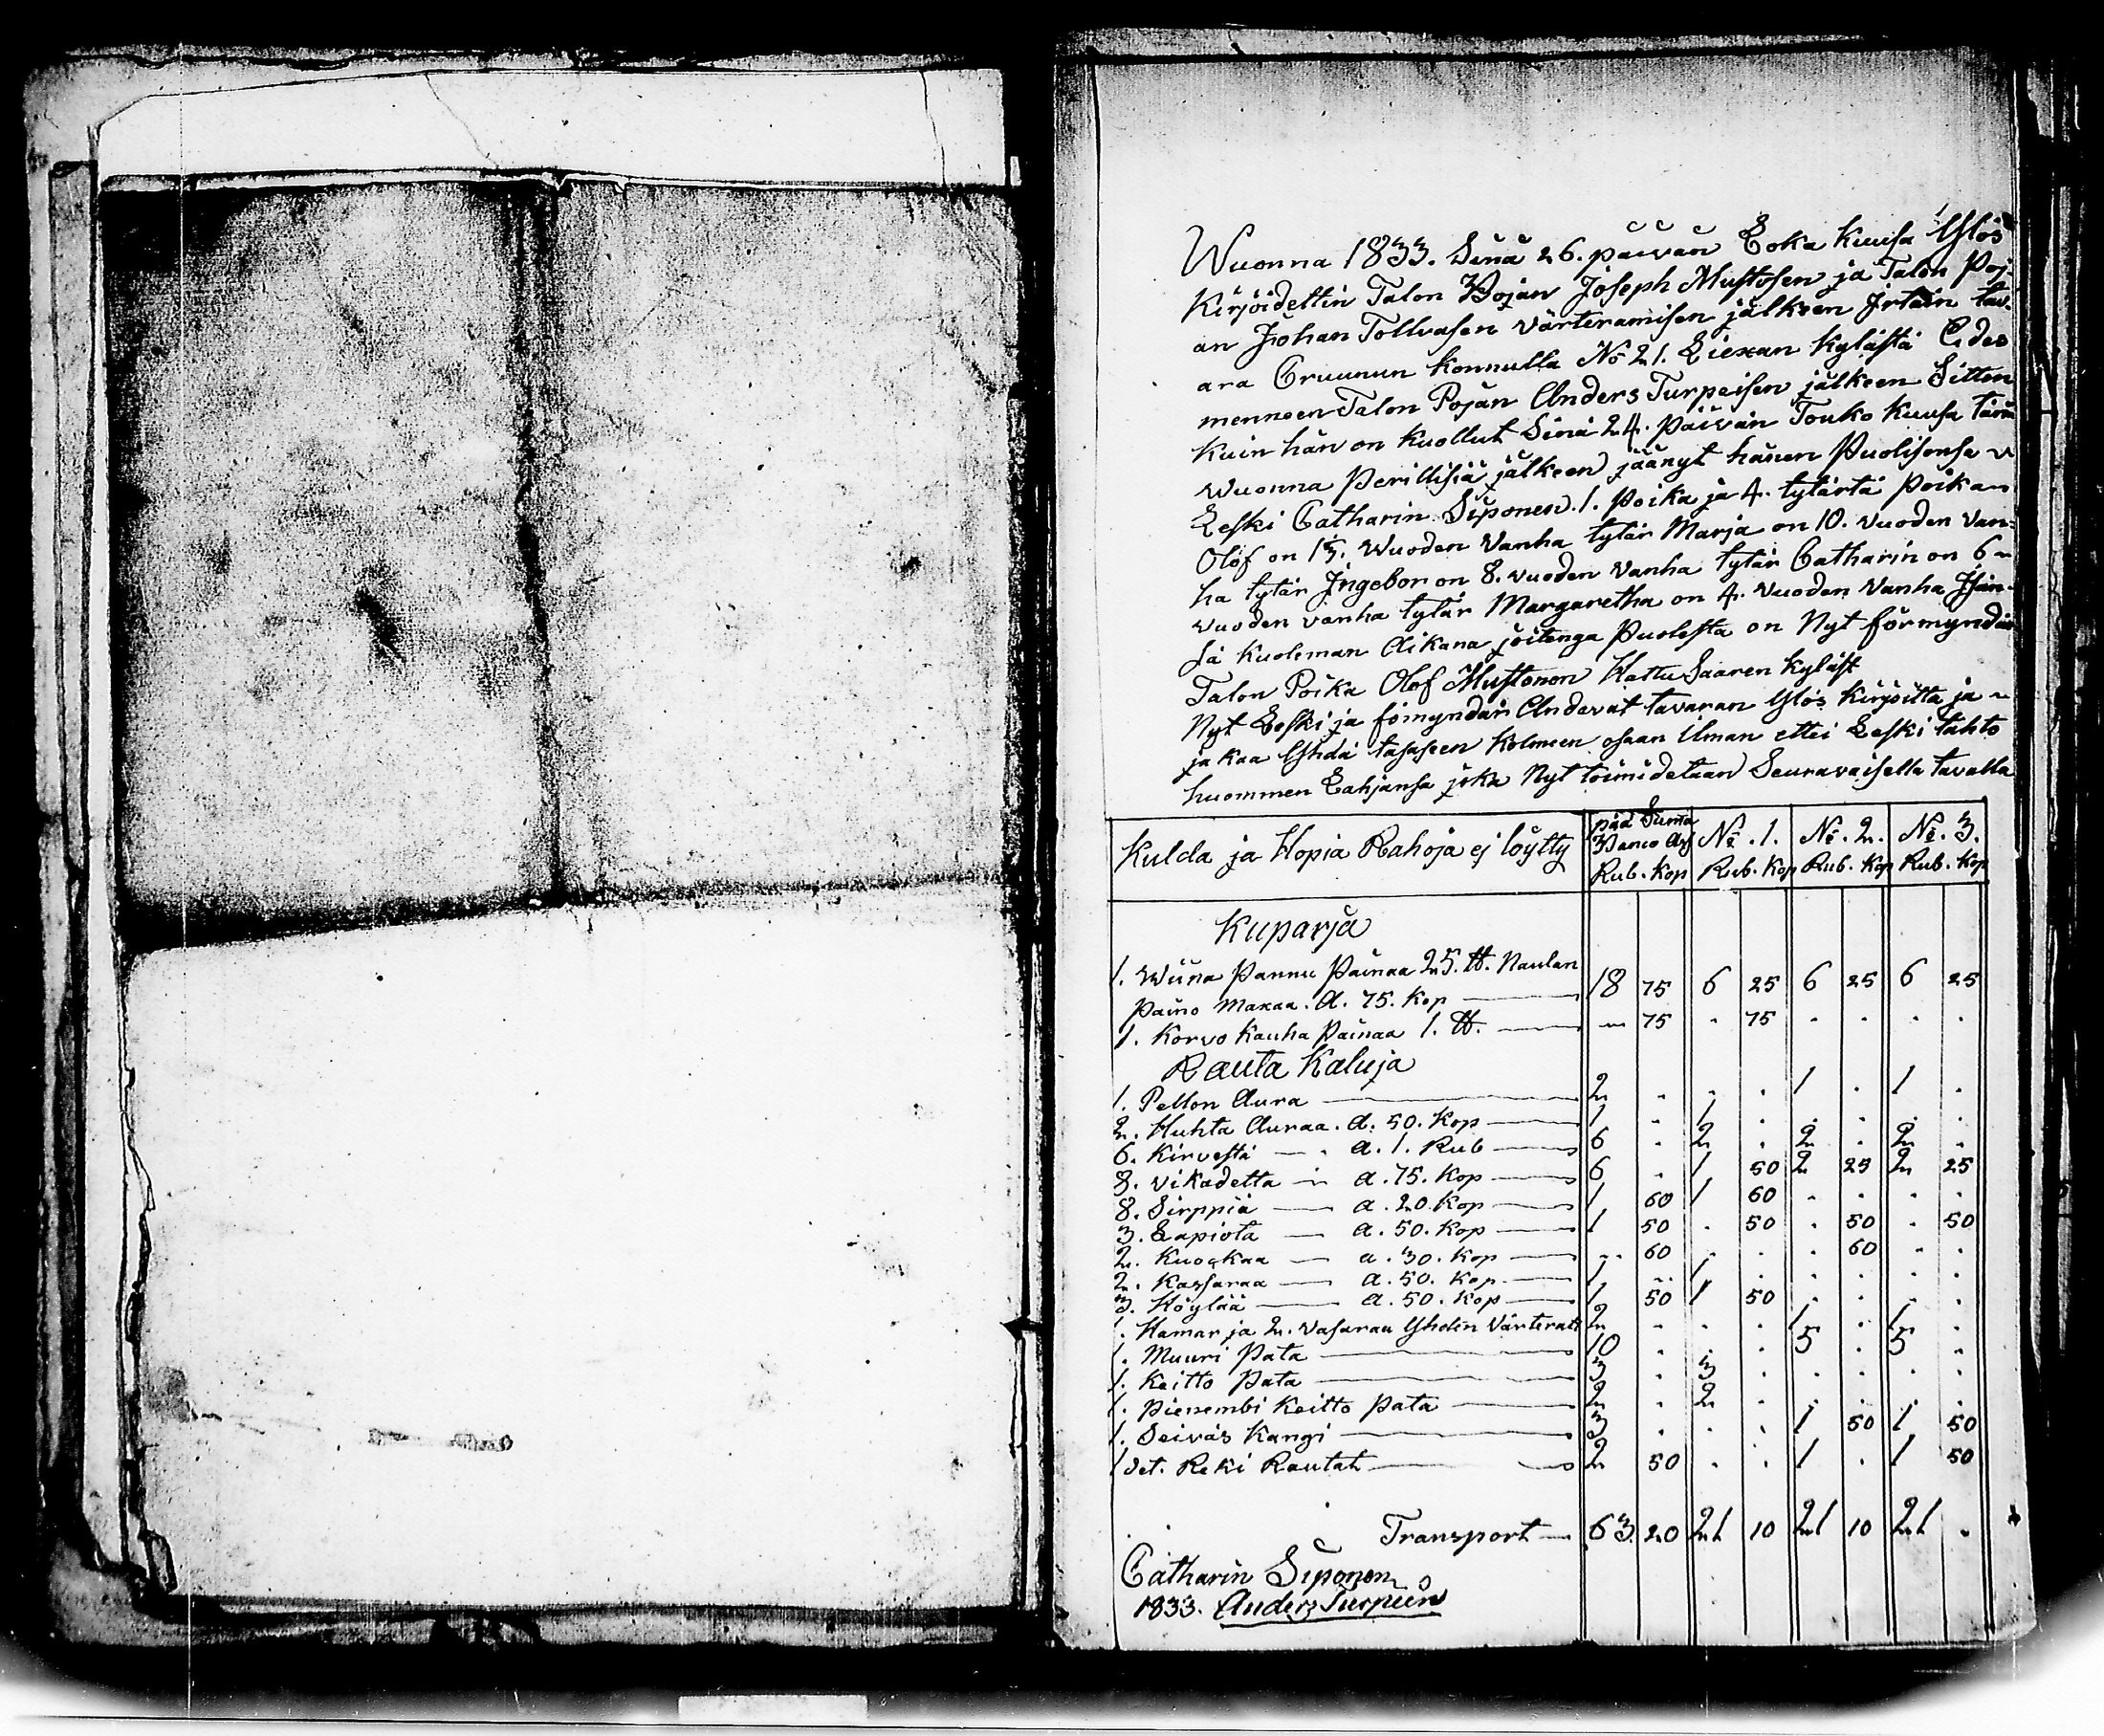 Wuonna 1833. Sinä 26. päivän Loka kuusa Ylös
Kirjoidettin Talon Pojan Joseph Mustosen ja Talon Poj
an Johan Tollvasen värteramisen jälkeen Jrtain tav:
ara Cruunun konnulla No 21. Liexan kylästä Edes
menneen Talon Pojan Anders Turpeisen jälkeen Sitten
Kuin hän on Kuollut Sinä 24. päivän Touko kuusa täm
Wuonna Perillisiä jälkeen jäänyt hänen Puolisonsa
Leski Catharin Siponen. 1. Poika ja 4. tytärtä Poikan
Olof on 15. Wuoden Vanha tytär Marja on 10. vuoden Van-
ha tytär Jngebor on 8. vuoden vanha tytär Catharin on 6
vuoden vanha tytär Margaretha on 4. vuoden vanha Jsän-
sä kuoleman Aikana joitenga Puolesta on Nyt förmyndär
Talon Poika Olof Mustonon Hattu Saaren kyläst
Nyt Leski ja fömyndär Andavat tavaran Ylös kirjoitta ja
jakaa Yhdä tasaseen kolmeen osaan Ilman ettei Leski tahto
huommen Lahjansa joka Nyt toimidetaan Seuravaisella tavalla
Kulda ja Hopia Rahoja ej löytty pää Suma Banco Asg No. 1. No. 2. No. 3.
Rub. Kop Rub. Kop Rub. Kop Rub. Kop
Kuparja
1. Wiina Pannu Painaa 25. ℔. Naulan
Paino maxaa. A. 75. Kop 18 75 6 25 6 25 6 25
1. Korvo Kauha Painaa 1. ℔. " 75 . 75 . . . .
Rauta Kaluja
1. Pellon Aura 2 . . . 1 . 1 .
2. Huhta Auraa. A. 50. Kop 1 . 1 . . . . .
6. Kirvestä A. 1. Rub 6 . 2 . 2 . 2 .
8. vikadetta A. 75. Kop 6 . 1 50 2 25 2 25
8. Sirppiä A. 20. Kop 1 60 1 60 . . . .
3. Lapiota A. 50. Kop 1 50 . 50 . 50 . 50
2. Kuockaa A. 30. Kop . 60 . . . 60 . .
2. Kassaraa A. 50. Kop 1 . 1 . . . . .
3. Höylää A. 50. Kop 1 50 1 50 . . . .
1. Hamar ja 2. Vasaraa Yhdein Värterati 2 . . . 1 . 1 .
1. Muuri Pata 10 . . . 5 . 5 .
1. Keitto Pata 3 . 3 . . . . .
1. Pienembi Keitto Pata 2 . 2 . . . . .
1. Seiväs Kangi 3 . . . 1 50 1 50
1 Set. Reki Rautat 2 50 . . 1 . 1 50
Transport 63. 20 21 10 21 10 21 .
Catharin Siponen
1833. Anders Turpein